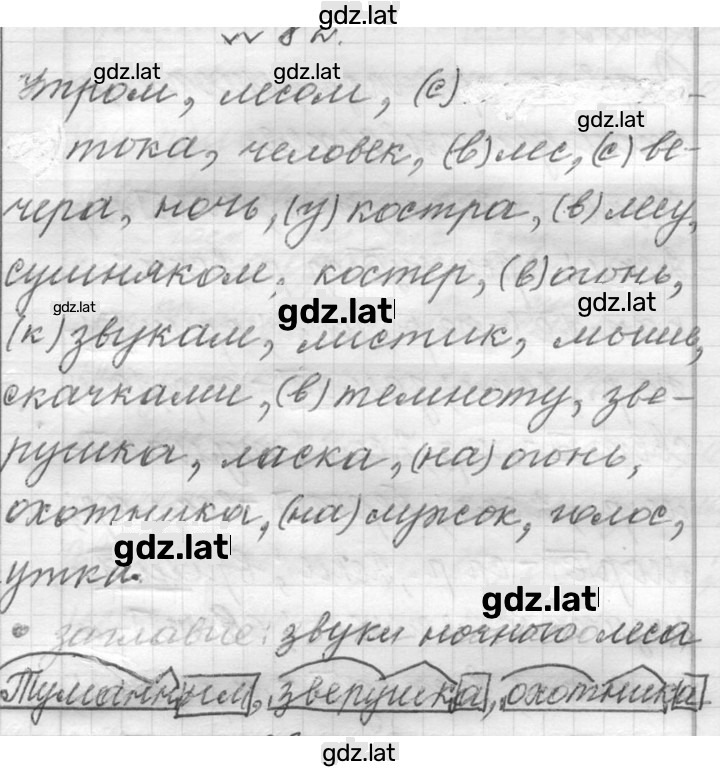 gdz.lat
№ 82.
gdz.lat gdz.lat
Утром, лесом, (с)
gdz.lat
тока, человек, (в) лес, (с) ве-
чера, ночь, (у) костра, (в) лесу,
сушняком, костер, (в) огонь,
gdz.lat gdz.lat gdz.lat
(к) звукам, листик, мышь,
скачками, (в) темноту, зве-
рушка, ласка, (на) огонь,
охотника, (на) мужок, голос,
gdz.lat
утка.
gdz.lat
• заглавие: звуки ночного леса
Туманным, зверушка, охотника
gdz.lat